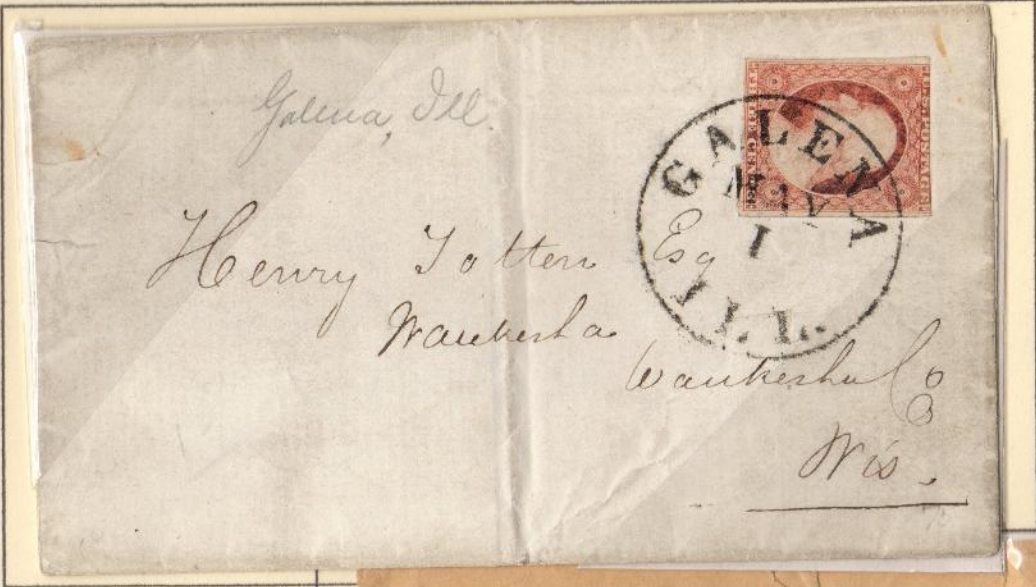 Galena, Ill.
GALENA
MAY
1
ILL.
Henry Totten Esq
Waukesha
Waukesha Co
Wis.